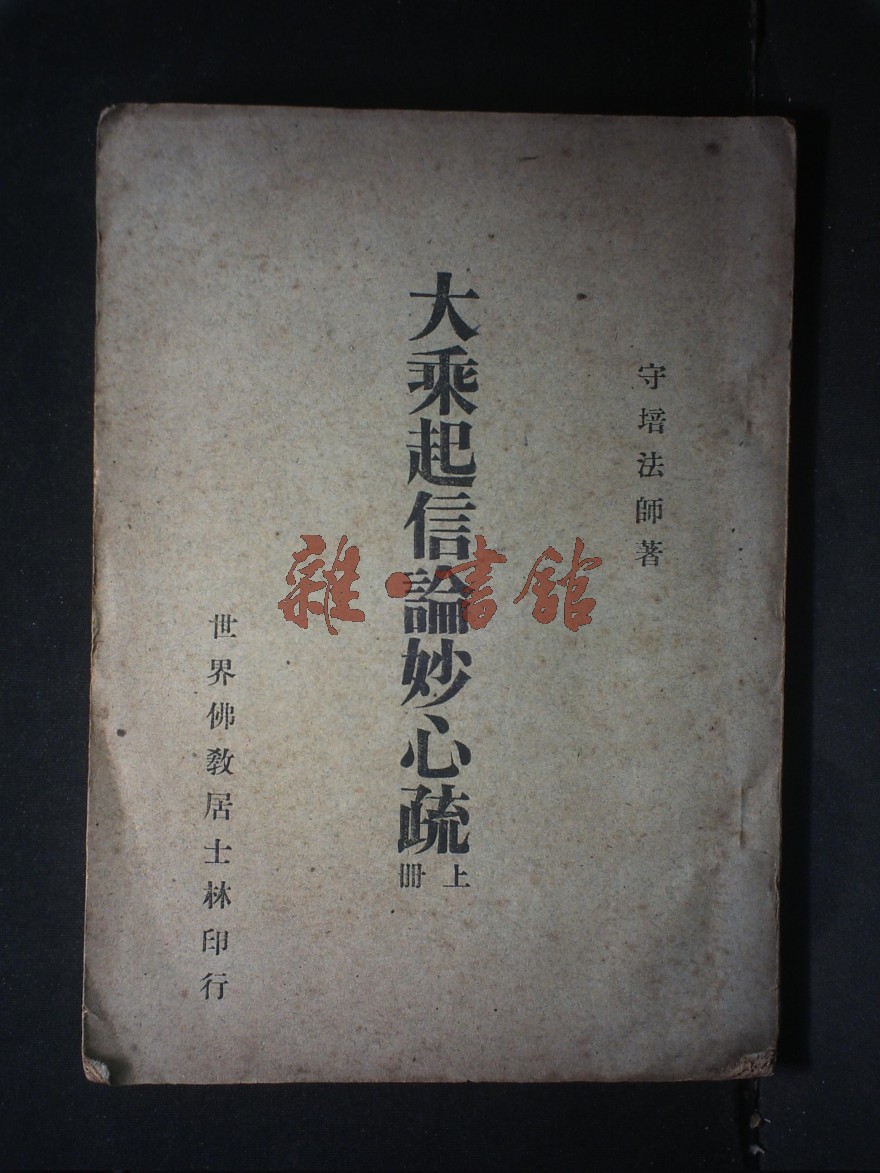 守培法師著
大乘起信論妙心疏
上冊
世界佛敎居士林印行
雜·書館